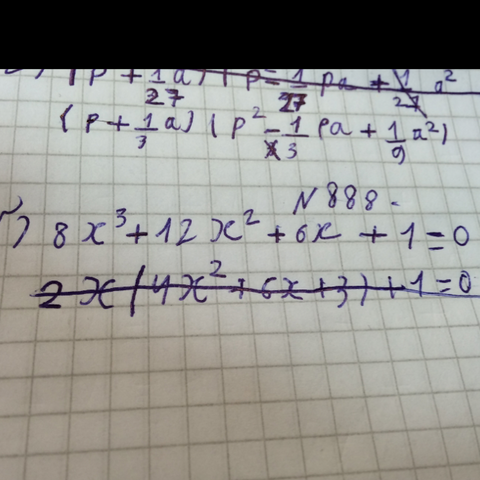 (p + 1/27 a) (p² - 1/27 pa + 1/27 a²
(p + 1/3 a) (p² - 1/3 pa + 1/9 a²)
N 888.
8x³ + 12x² + 6x + 1 = 0
2x(4x² + 6x + 3) + 1 = 0